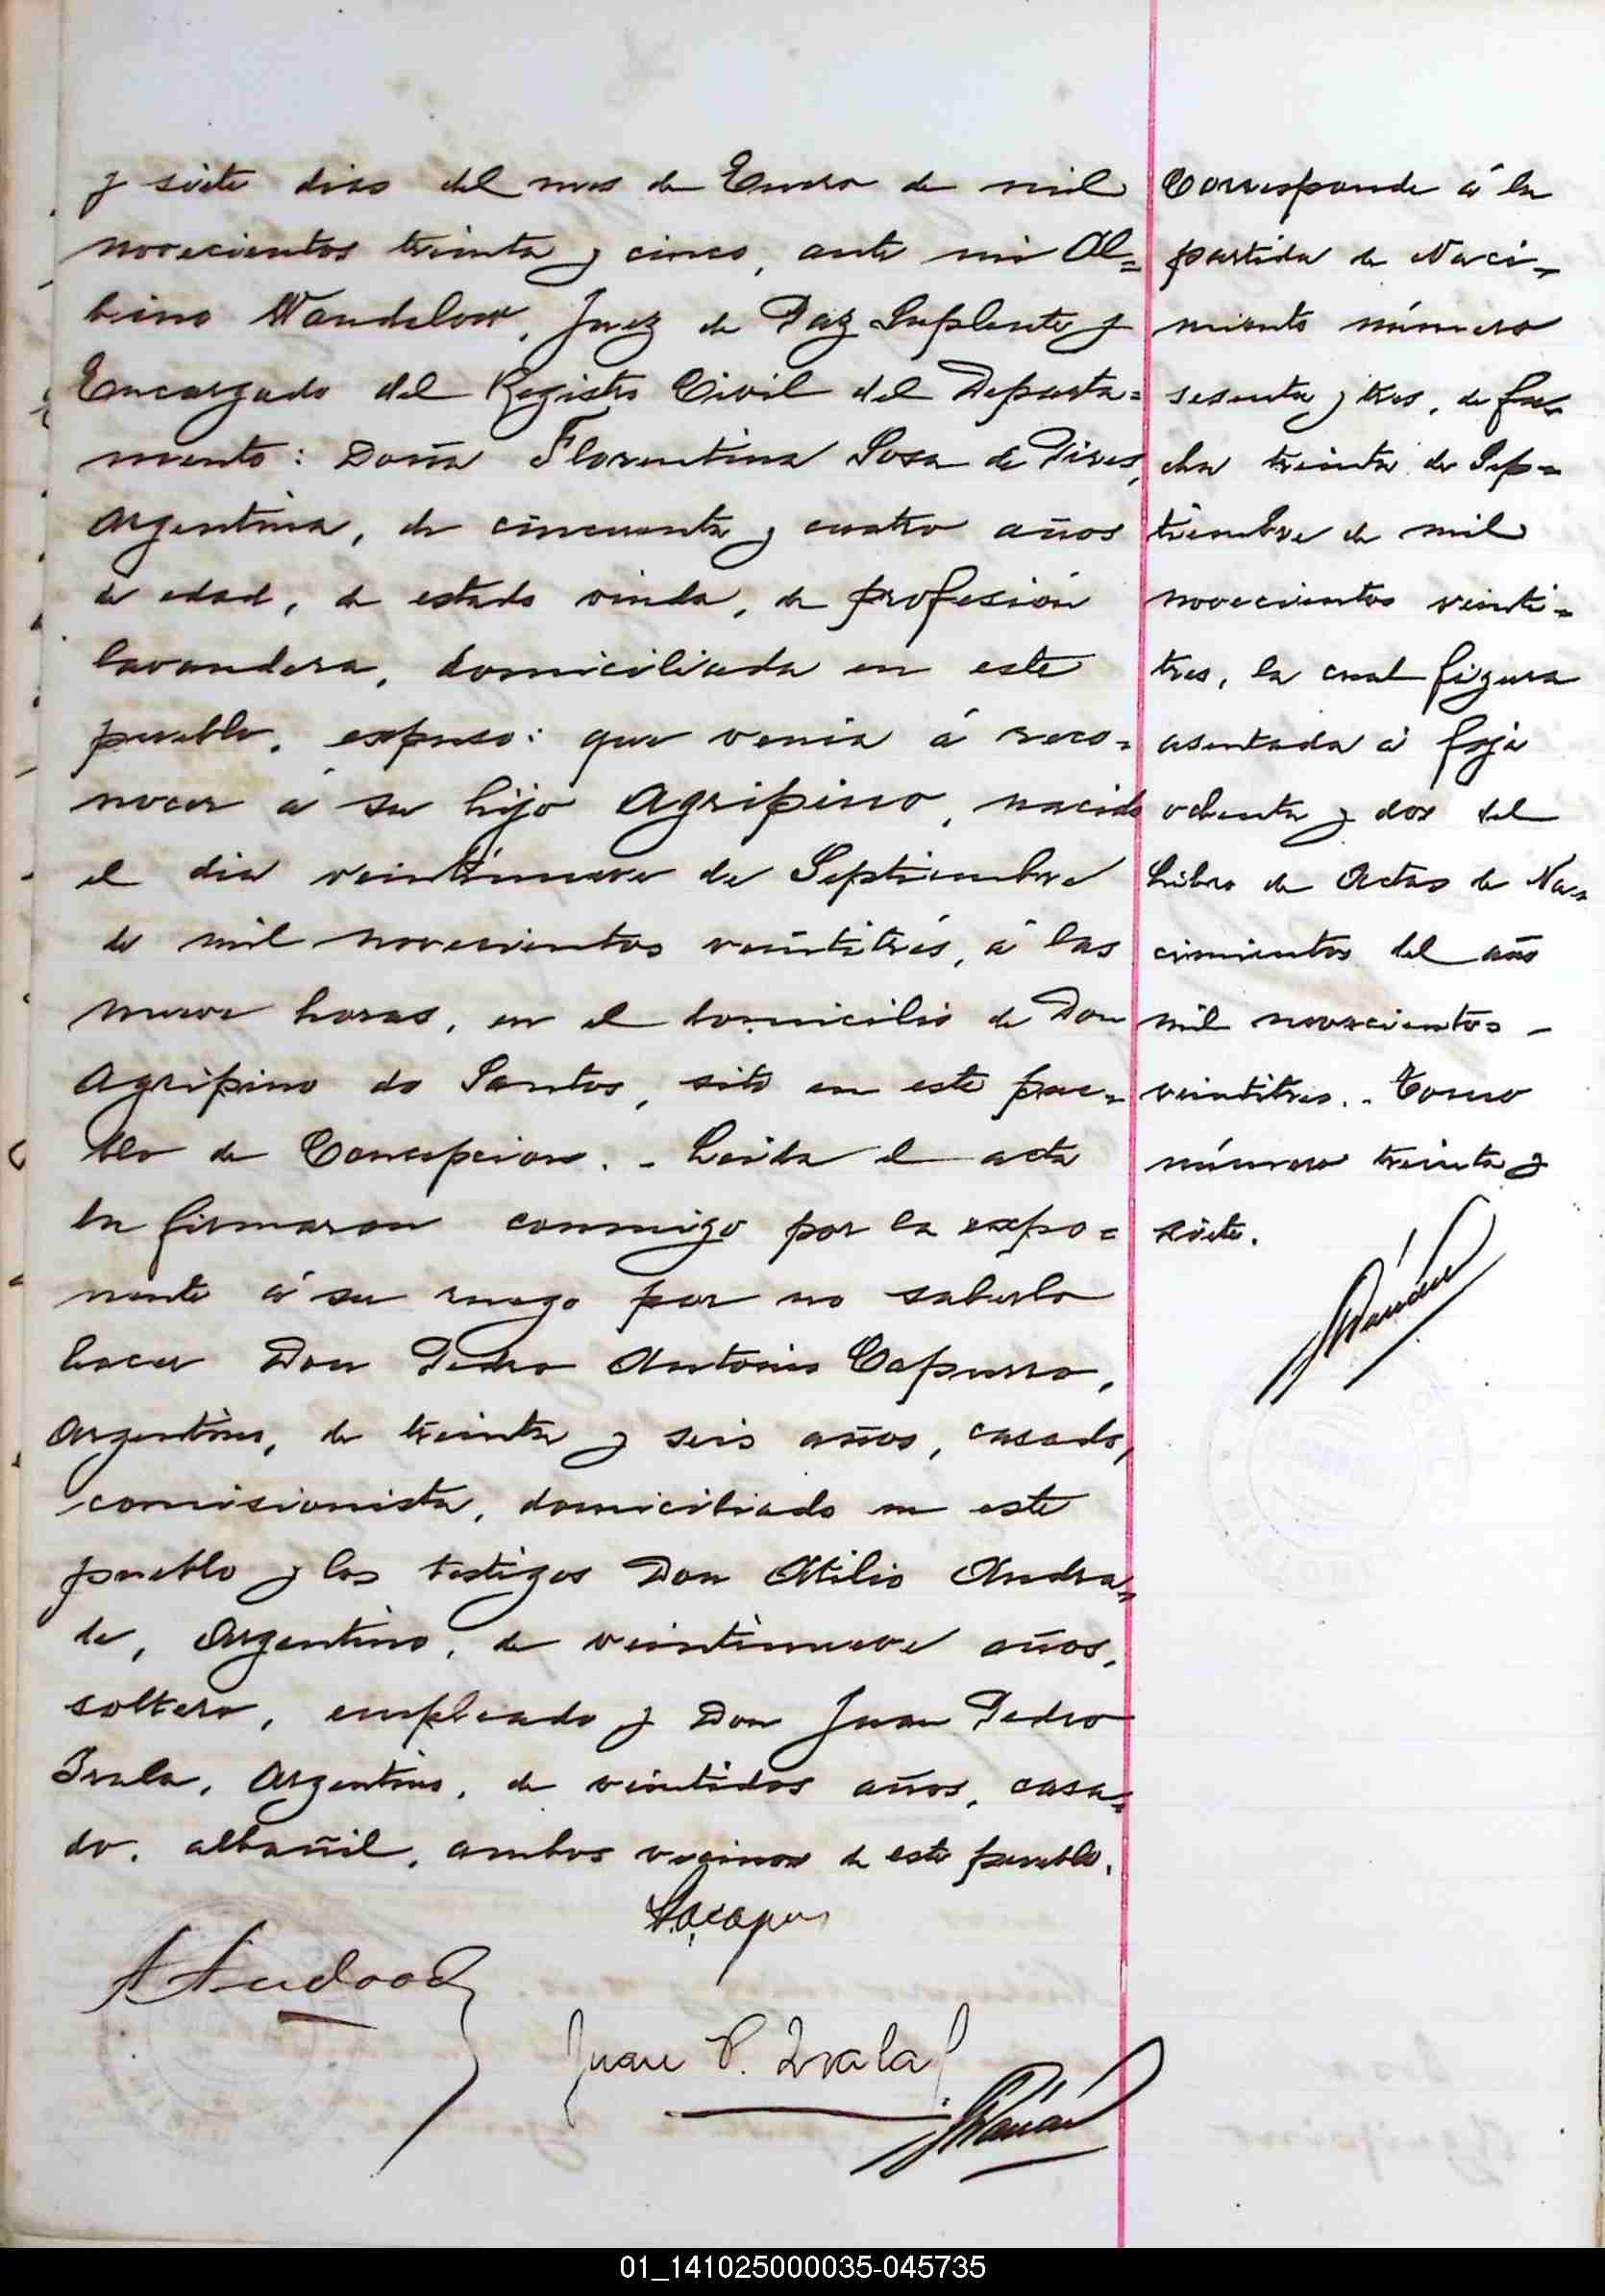 y siete dias del mes de Enero de mil
novecientos treinta y cinco, ante mi Al=
bino Wandelow, Juez de Paz Suplente y
Encargado del Registro Civil del Departa=
mento: Doña Florentina Sosa de Pires,
Argentina, de cincuenta y cuatro años
de edad, de estado viuda, de profesión
lavandera, domiciliada en este
pueblo, expuso: que venia á reco=
nocer á su hijo Agripino, nacido
el dia veintinueve de Septiembre
de mil novecientos veintitrés, á las
nueve horas, en el domicilio de Don
Agripino do Santos, sito en este pue=
blo de Concepcion. - Leida el acta
la firmaron conmigo por la expo=
nente á su ruego por no saberlo
hacer Don Pedro Antonio Capurro,
Argentino, de treinta y seis años, casado,
comisionista, domiciliado en este
pueblo y los testigos Don Atilio Andra=
de, Argentino, de veintinueve años,
soltero, empleado y Don Juan Pedro
Irala, Argentino, de veintidos años, casa=
do, albañil, ambos vecinos de este pueblo.
Juan P. Irala
Corresponde á la
partida de Naci=
miento número
sesenta y tres, de fe=
cha treinta de Sep=
tiembre de mil
novecientos veinti=
tres, la cual figura
asentada á foja
ochenta y dos del
Libro de Actas de Na=
cimientos del año
mil novecientos -
veintitres. - Tomo
número treinta y
siete.
01_141025000035-045735